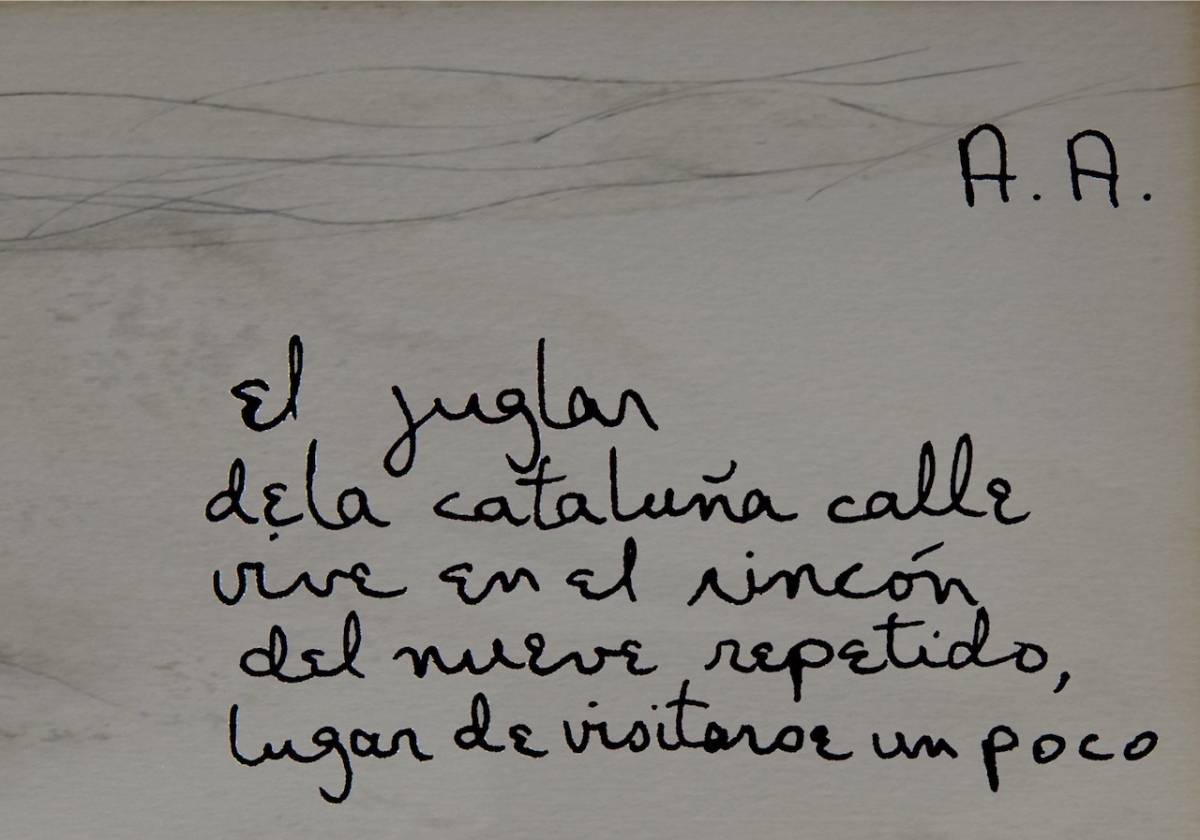 A. A.
El juglar
de la cataluña calle
vive en el rincón
del nueve repetido,
lugar de visitarse un poco